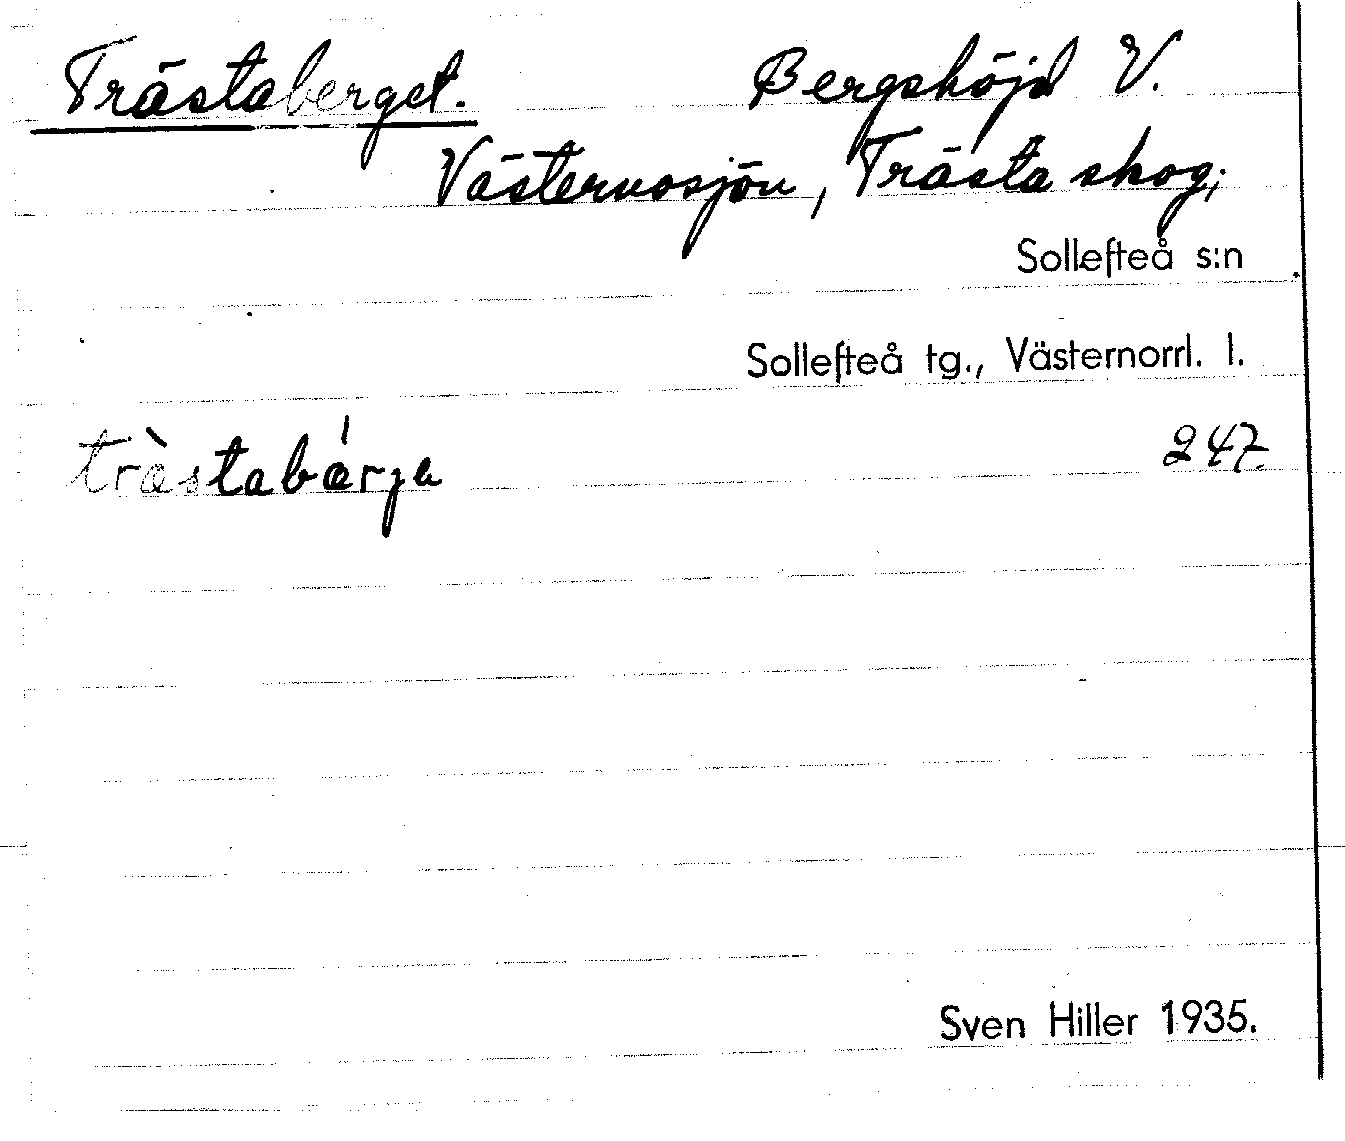 Trästaberget. Bergshöjd V.
Västernosjön, Trästa skog;
Sollefteå s:n
Sollefteå tg., Västernorrl. l.
tràstabárja 247.
Sven Hiller 1935.